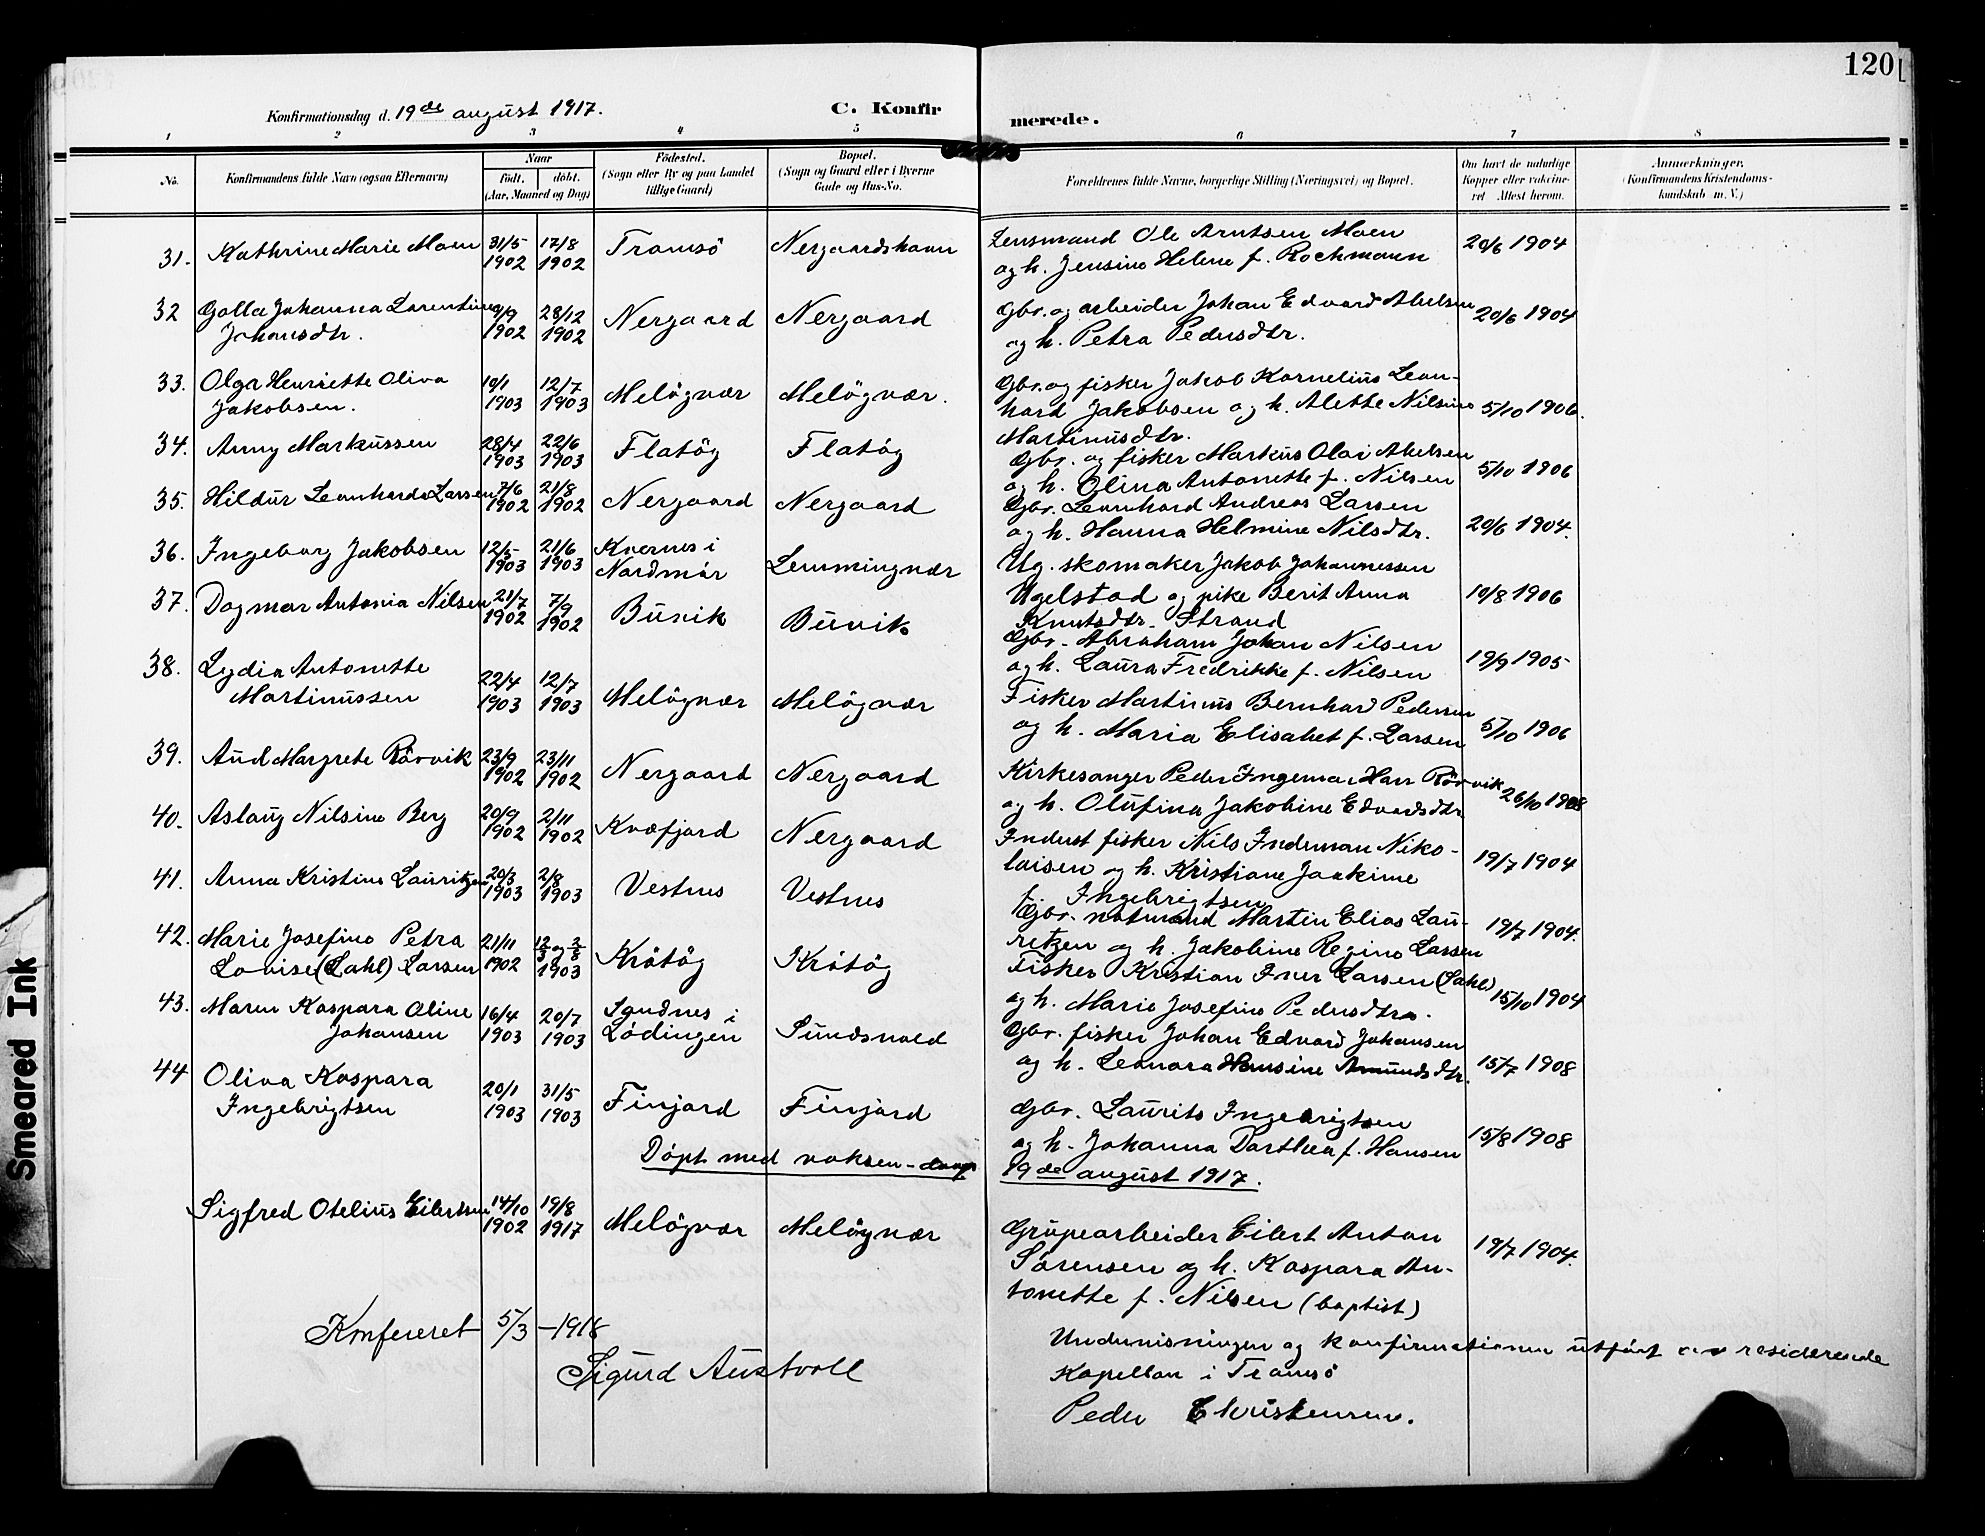 120
Konfirmationsdag d. 19de august 1917.
C. Konfir merede.
1 2 3 4 5 6 7 8
No.
Konfirmandens fulde Navn (ogsaa Efternavn)
Naar
født. døbt.
(Aar, Maaned og Dag)
Födested.
(Sogn eller By og paa Landet
tillige Gaard)
Bopæl.
(Sogn og Gaard eller i Byerne
Gade og Hus-No.
Forældrenes fulde Navne, borgerlige Stilling (Næringsvei) og Bopæl.
Om havt de naturlige
Kopper eller vakcine-
ret Attest herom.
Anmerkninger.
(Konfirmandens Kristendoms-
kundskab m. V.)
31. Kathrine Marie Moen 31/5 1902 17/8 1902 Tromsö Nergaardshavn Lensmand Ole Arntsen Moen
og h. Jensine Helene f. Rochmann 20/6 1904
32 Golla Johanna Larentine 9/9 1902 28/12 1902 Nergaard Nergaard Gbr. og arbeider Johan Edvard Abelsen 20/6 1904
Johansdtr. og h. Petra Pedersdtr.
33. Olga Henriette Oliva 10/1 1903 12/7 1903 Melögvær Melögvær. Gbr. og fisker Jakob Kornelius Leon-
Jakobsen. hard Jakobsen og h. Alette Nilsine 5/10 1906.
Martinusdtr.
34. Anny Markussen 28/4 1903 22/6 1903 Flatög Flatög Gbr. og fisker Markus Olai Abelsen
og h. Olina Antonette f. Nilsen 5/10 1906
35. Hildur Leonharda Larsen 7/6 1902 21/8 1902 Nergaard Nergaard Gbr. Leonhard Andreas Larsen
og h. Hanna Helmine Nilsdtr. 20/6 1904.
36. Ingeborg Jakobsen 12/5 1903 21/6 1903 Kvernes i
Nordmör Lemmingvær Ug. skomaker Jakob Johannessen
Ugelstad og pike Berit Anna 10/8 1906
Knutsdtr. Strand
37. Dagmar Antonia Nilsen 21/7 1902 7/9 1902 Buvik Buvik Gbr. Abraham Johan Nilsen
og h. Laura Fredrikke f. Nilsen 19/9 1905
38. Lydia Antonette
Martinussen 22/4 1903 12/7 1903 Melögvær Melögvær Fisker Martinus Bernhard Pedersen
og h. Maria Elisabet f. Larsen 5/10 1906
39. Aud Margrete Rörvik 23/9 1902 23/11 1902 Nergaard Nergaard Kirkesanger Peder Ingemar Harr Rörvik
og h. Olufina Jakobine Edvardsdtr 26/10 1908
40. Aslaug Nilsine Berg 20/9 1902 2/11 1902 Kvæfjord Nergaard Inderst fisker Nils Indeman Niko-
laisen og h. Kristiane Joakime 19/7 1904
f. Ingebrigtsen
41. Anna Kristine Lauritzen 20/3 1903 2/8 1903 Vestnes Vestnes Gbr. notmand Martin Elias Lau-
ritzen og h. Jakobine Regine Larsen 19/7 1904.
42. Marie Josefine Petra
Lovise (Dahl) Larsen 21/11 1902 12/3 og 2/8 1903 Krötög Krötög Fisker Kristian Iver Larsen (Dahl)
og h. Marie Josefine Pedersdtr. 15/10 1904
43. Maren Kaspara Oline
Johansen 16/4 1903 20/7 1903 Sandnes i
Lødingen Sundsvold Gbr. fisker Johan Edvard Johansen
og h. Leonora Hansine Amundsdtr. 15/7 1908
44 Oliva Kaspara
Ingebrigtsen 20/1 1903 31/5 1903 Finjord Finjord Gbr. Laurits Ingebrigtsen
og h. Johanna Dorthea f. Hansen 15/8 1908
Döpt med voksen-daap 19de august 1917.
Sigfred Otelius Eilertsen 14/10 1902 19/8 1917 Melögvær Melögvær Grubearbeider Eilert Anton
Sörensen og h. Kaspara An- 19/7 1904.
tonette f. Nilsen (baptist)
Konfereret 5/3 - 1918
Sigurd Austvoll
Undervisningen og konfirmationen utført av residerende
Kapellan i Tromsö
Peder Christensen.
Smeared Ink